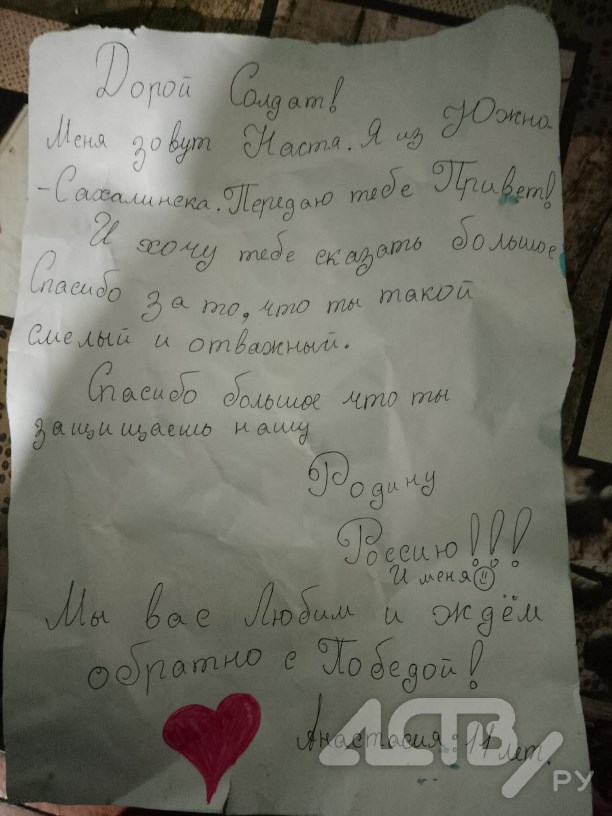 Дорой Солдат!
Меня зовут Настя. Я из Южно-
-Сахалинска. Передаю тебе Привет!
И хочу тебе сказать большое
Спасибо за то, что ты такой
смелый и отважный.
Спасибо большое что ты
защищаешь нашу
Родину
Россию!!!
И меня
Мы вас Любим и ждём
обратно с Победой!
Анастасия: 11 лет.
АСТВ
РУ